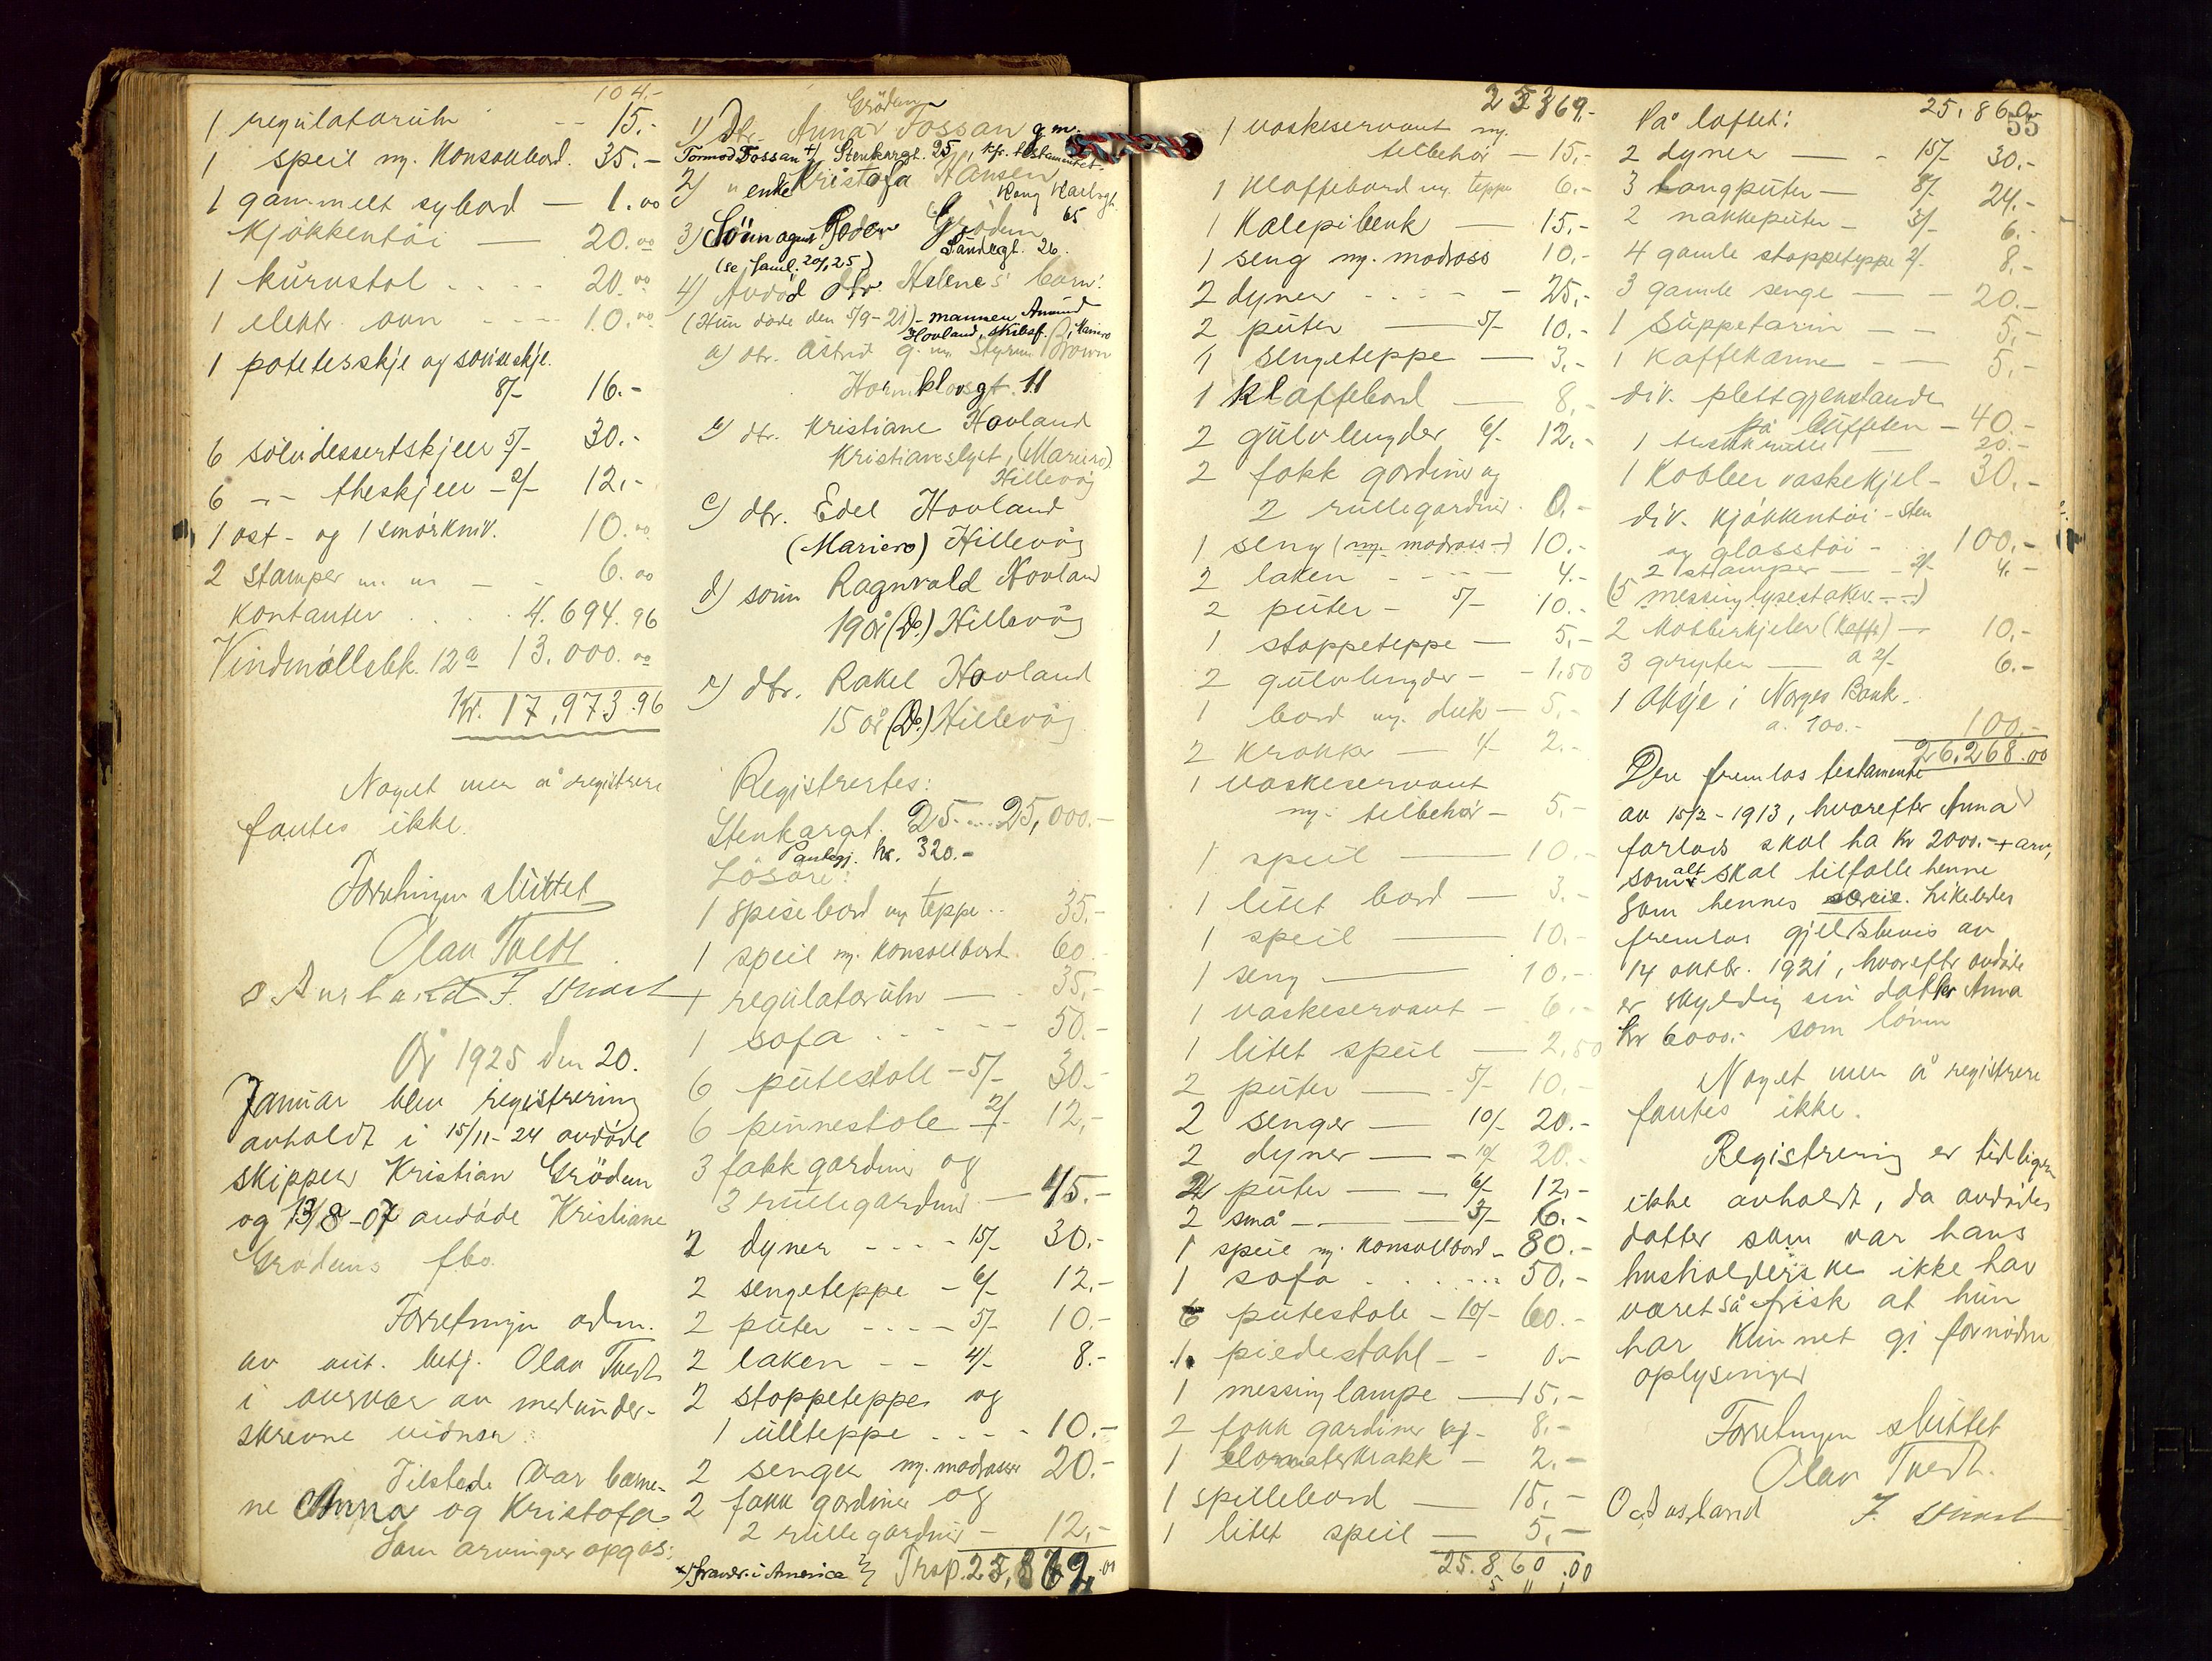 104.-
1 regulatorühr -- 15.-
1 speil m. Konsollbord. 35.-
1 gammelt sybord — 1.00
Kjøkkentöi — 20.00
1 kürvstol . . . . 20.00
1 elektr. ovn - - - 10.00
1 poteterskje og souseskje.
8/- 16.-
6 sölvdessertskjeer 5/- 30.-
6 -„- theskjeer - 2/- 12.-
1 ost- og 1 smörkniv. 10.00
2 stamper m. m. - - 6.00
Kontanter . . . . 4.694.96
Vindmöllebk. 12a 13.000.00
Kr. 17,973.96
Noget mer å registrere
fantes ikke.
Forretningen sluttet
Olav Tvedt
O Ausland J.
År 1925 den 20.
Januar blev registrering
avholdt i 15/11-24 avdöde
skipper Kristian Grödem
og 13/8-07 avdöde Kristiane
Grödems fbo.
Forretningen adm.
av aut. betj. Olav Tvedt
i overvær av medunder-
skrevne vidner:
Tilstede var barne-
ne Anna og Kristofa
Som arvinger opgas:
Grödem
1) Dtr. Anna Fossan g.m.
Tormod Fossan +) Stenkargt. 25, kfr. testamentet.
2) „ enke Kristofa Hansen
Kong Karlsgt. 65
3) Sönn August Peder Grödem
(se saml. 20/1 25) Sandeigt. 26.
4) Avdöd dtr. Helene's barn:
(Hun döde den 5/9-21) - mannen Amund
Hovland, skibsf., Mariero
a) dtr. Astrid g. m. Styrm. Brown
Hornklovsgt. 11
b) dtr. Kristiane Hovland
Kristianslyst, (Mariero)
Hillevåg
c) dtr. Edel Hovland
(Mariero) Hillevåg
d) sönn Ragnvald Hovland
19 år (Do.) Hillevåg
e) dtr. Rakel Hovland
15 år (Do.) Hillevåg
Registrertes:
Stenkargt. 25 .... 25,000.-
Panlegj. kr. 320.-
Lösöre:
1 spisebord m. teppe .. 35.-
1 speil m. Konsollbord. 60.-
+ regulatorühr — 35.-
1 sofa . . - - - 50.-
6 pütestole - 5/- 30.-
6 pinnestole 2/- 12.-
3 fakk gardiner og
3 rüllegardiner — 45.-
2 dyner - - - - 15/- 30.-
2 sengeteppe - 6/- 12.-
2 püter - - - - 5/- 10.-
2 laken - - 4/- 8.-
2 stoppeteppe og
1 üllteppe . . - - 10.-
2 senger m. madrasser 20.-
2 fakk gardiner og
2 rüllegardiner — 12.-
+) fravær. i America Trsp. 25,
1 vaskeservant m.
tilbehör — 15.-
1 Klaffebord m. teppe 6.-
1 Kalepibenk — 15.-
1 seng m. madrass 10.-
2 dyner - - - - - 25.-
2 püter — 5/- 10.-
1 sengeteppe — 3.-
1 klaffebord — 8.-
2 gülvlengder 6/- 12.-
2 fakk gardiner og
2 rüllegardiner . 0.-
1 seng (m. madrass -) 10.-
2 laken - - - - 4.-
2 püter - 5/- 10.-
1 stoppeteppe — 5.-
2 gülvlengder - - 1.50
1 bord m. duk — 5.-
2 krakker — 1/- 2.-
1 vaskeservant
m. tilbehör - 5.-
1 speil — 10.-
1 litet bord — 3.-
1 speil — 10.-
1 seng — 10.-
1 vaskeservant - 6.-
1 litet speil — 2,50
2 püter — 5/- 10.-
2 senger — 10/- 20.-
2 dyner — - 10/- 20.-
2 püter — — 6/- 12.-
2 små — — 3/- 6.-
1 speil m. Konsollbord - 80.-
1 sofa . . . . . . . 50.-
6 pütestole - 10/- 60.-
1. piedestahl - - 0.-
1 messinglampe — 15.-
2 fakk gardiner - 8.-
1 blomsterkrakk - 2.-
1 spillebord — 15.-
1 litet speil — 5.-
25.860.00
25,860.00
55
På loftet:
2 dyner — - 15/- 30.-
3 langpüter — 8/- 24.-
2 nakkepüter - 3/- 6.-
4 gamle stoppeteppe 2/- 8.-
3 gamle senge — - 20.-
1 süppeterin — - 5.-
1 Kaffekanne - — 5.-
div. plettgjenstande
på büffeten — 40.-
20.-
1 Kobber vaskekjel - 30.-
div. Kjökkentöi - sten
og glasstöi - 100.-
2 stamper — - 2/- 4.-
(5 messinglysestaker - -)
2 Kobberkjeler (Kaffe) — 10.-
3 gryter — à 2/- 6.-
1 aksje i Norges Bank.
a. 100.- 100.-
26,268.00
Der fremlas testamente
av 15/2-1913, hvorefter Anna
forlods skal ha kr 2000.- + arv,
som alt skal tilfalle henne
som hennes særeie. Likeledes
fremlas gjeldsbevis av
14 oktbr. 1921, hvorefter avdöde
er skyldig sin datter Anna
kr 6000.- som lönn
Noget mer å registrere
fantes ikke.
Registrering er tidligere
ikke avholdt, da avdödes
datter som var hans
husholderske ikke har
været så frisk at hun
har kunnet gi fornödne
oplysninger
Forretningen sluttet
Olav Tvedt.
O Ausland J.